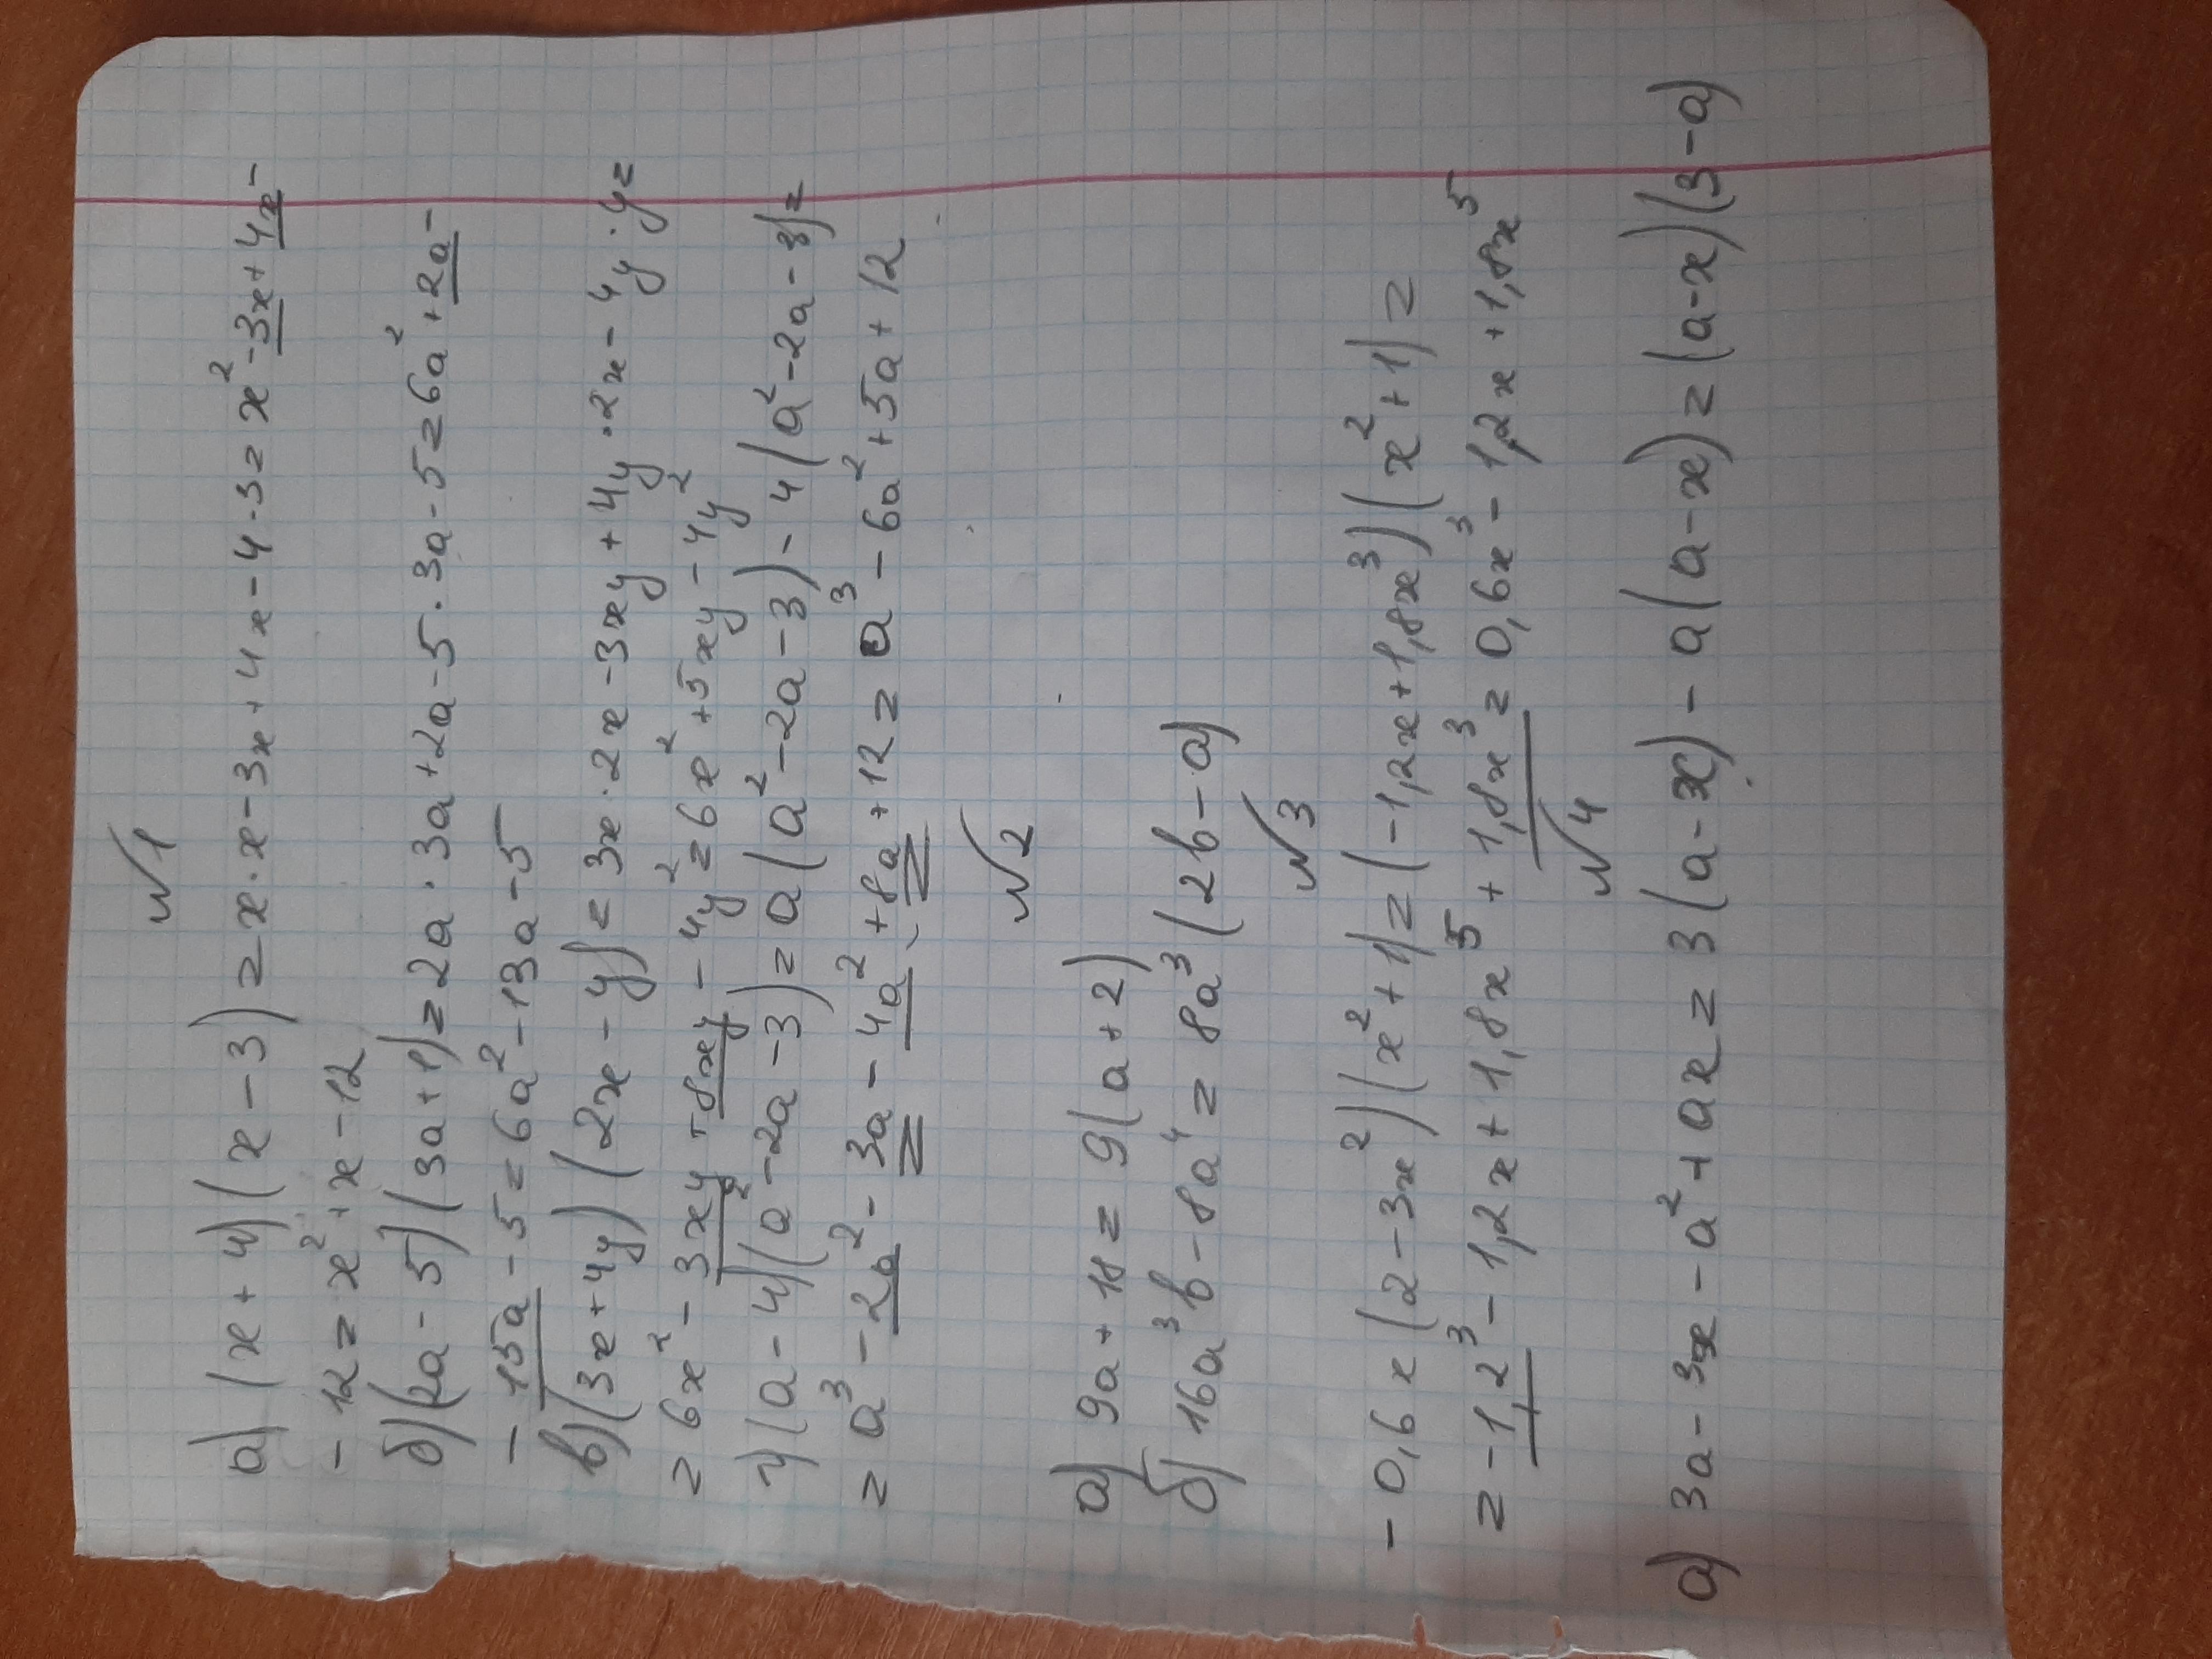 №1
а) (x+4)(x-3)=x·x-3x+4x-4·3=x²-3x+4x-
-12=x²+x-12
б)(2a-5)(3a+1)=2a·3a+2a-5·3a-5=6a²+2a-
-15a-5=6a²-13a-5
в)(3x+4y)(2x-y)=3x·2x-3xy+4y·2x-4y·y=
=6x²-3xy+8xy-4y²=6x²+5xy-4y²
г)(a-4)(a²-2a-3)=a(a²-2a-3)-4(a²-2a-3)=
=a³-2a²-3a-4a²+8a+12=a³-6a²+5a+12
№2
а) 9a+18=9(a+2)
б) 16a³b-8a⁴=8a³(2b-a)
№3
-0,6x(2-3x²)(x²+1)=(-1,2x+1,8x³)(x²+1)=
=-1,2³-1,2x+1,8x⁵+1,8x³=0,6x³-1,2x+1,8x⁵
№4
а) 3a-3x-a²+ax=3(a-x)-a(a-x)=(a-x)(3-a)